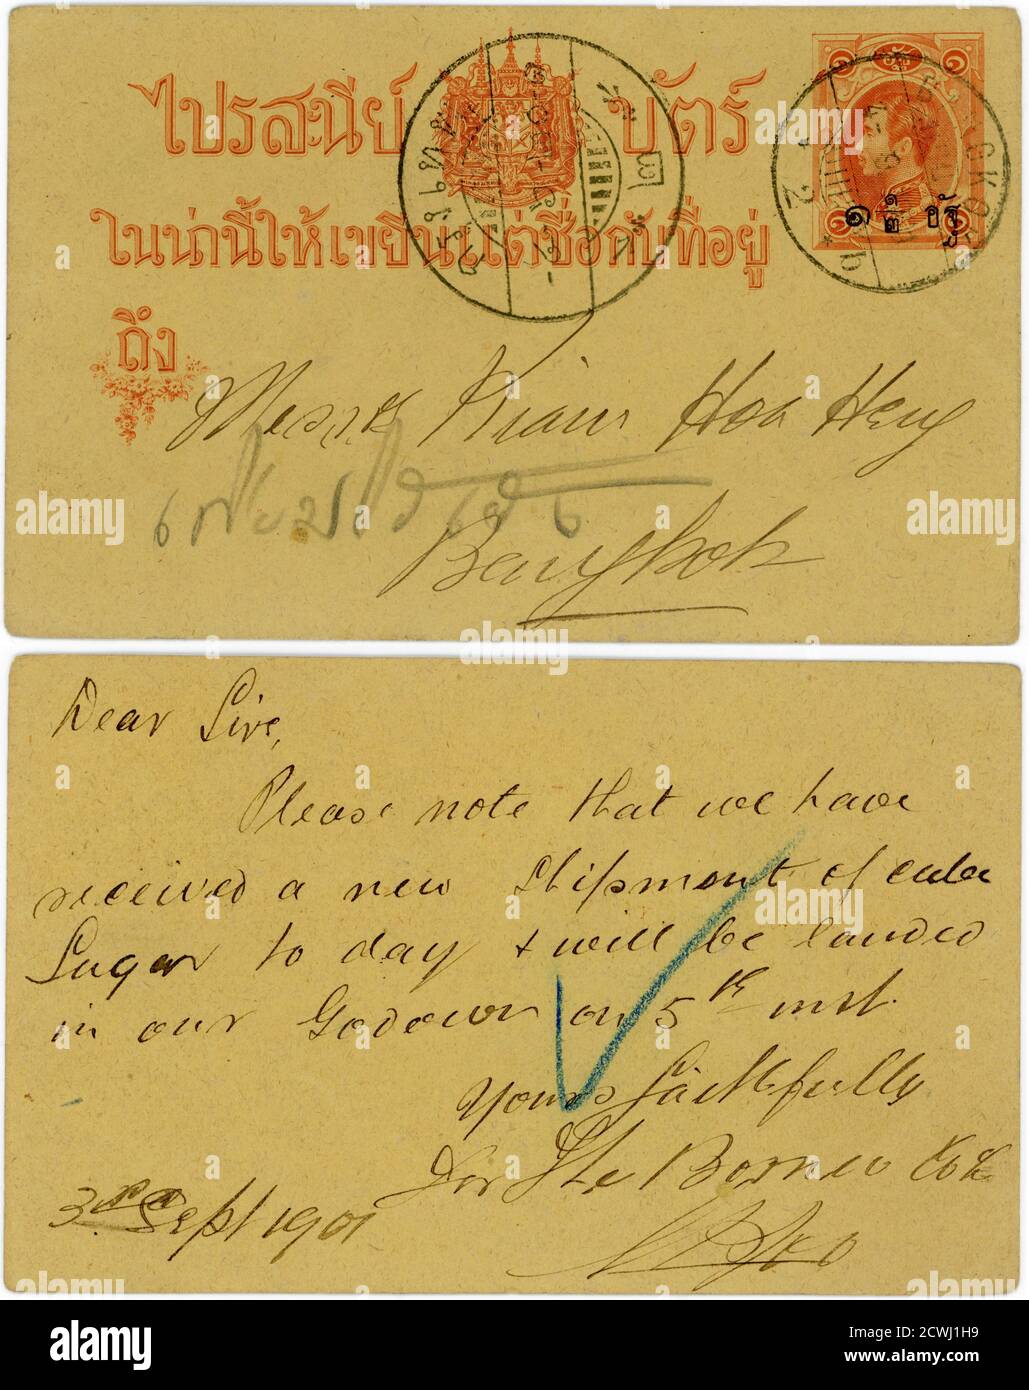 ไปรสนียบัตร์
ในน่านี้ให้เขียนแต่ชื่อกับที่อยู่
ถึง
๑ ๑
BANGKOK
2
๑ อัฐ
Messrs Kiam Hoa Heng
Bangkok
Dear Sirs,
Please note that we have
received a new Shipment of cube
Sugar to day & will be landed
in our Godown on 5th inst.
Yours faithfully
For The Borneo Co Ld
3rd Sept 1901
alamy
Image ID: 2CWJ1H9
www.alamy.com